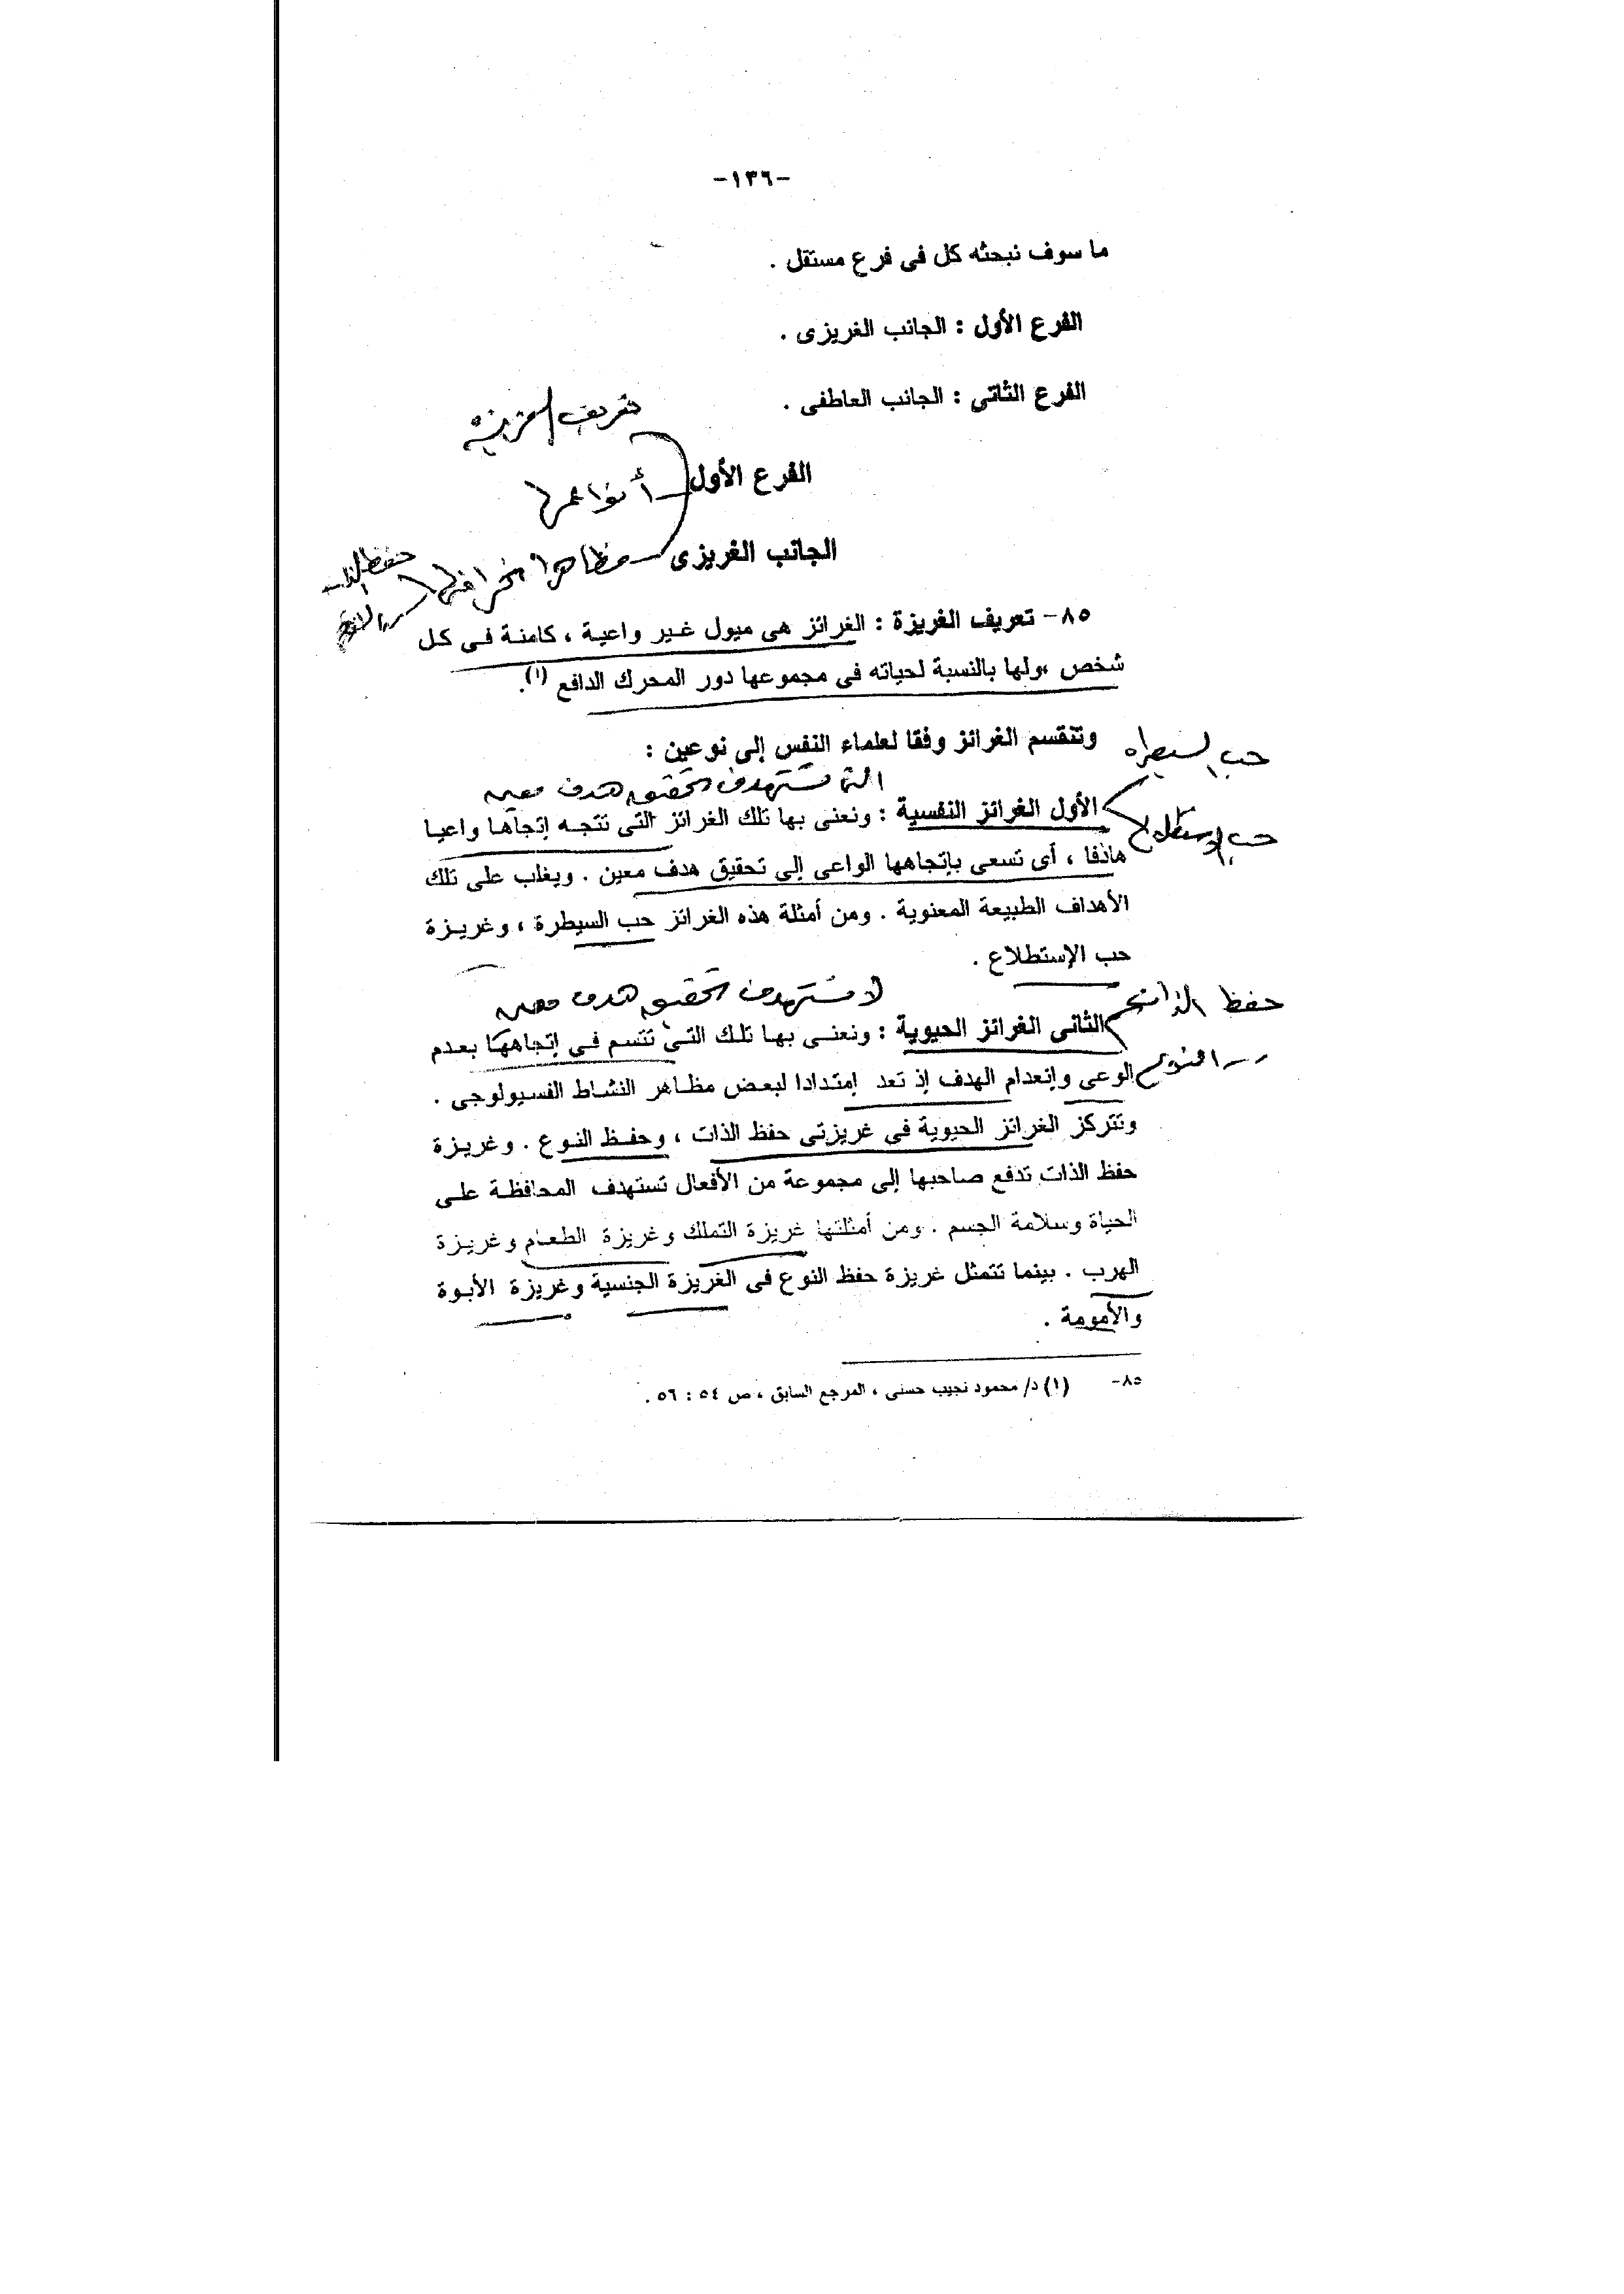 -١٣٦-
ما سوف نبحثه كل فى فرع مستقل .
الفرع الأول : الجانب الغريزى .
الفرع الثاني : الجانب العاطفى .
تعريف الغريزة
الفرع الأول
أنواعها
الجانب الغريزى
مظاهر انحرافها
حفظ الذات
٨٥- تعريف الغريزة : الغرائز هى ميول غير واعية ، كامنة فى كل
شخص ،ولها بالنسبة لحياته فى مجموعها دور المحرك الدافع (١).
وتنقسم الغرائز وفقا لعلماء النفس إلى نوعين :
حب السيطره
التى تستهدف تحقيق هدف معين
الأول الغرائز النفسية : ونعنى بها تلك الغرائز التى تتجه إتجاها واعيا
حب الاستطلاع
هادفا ، أى تسعى بإتجاهها الواعى إلى تحقيق هدف معين . ويغلب على تلك
الأهداف الطبيعة المعنوية . ومن أمثلة هذه الغرائز حب السيطرة ، وغريزة
حب الإستطلاع .
لا تستهدف تحقيق هدف معين
حفظ الذات
الثانى الغرائز الحيوية : ونعنى بها تلك التى تتسم فى إتجاهها بعدم
النوع
الوعى وإنعدام الهدف إذ تعد إمتدادا لبعض مظاهر النشاط الفسيولوجى .
وتتركز الغرائز الحيوية فى غريزتى حفظ الذات ، وحفظ النوع . وغريزة
حفظ الذات تدفع صاحبها إلى مجموعة من الأفعال تستهدف المحافظة على
الحياة وسلامة الجسم . ومن أمثلتها غريزة التملك وغريزة الطعام وغريزة
الهرب . بينما تتمثل غريزة حفظ النوع فى الغريزة الجنسية وغريزة الأبوة
والأمومة .
٨٥- (١) د/ محمود نجيب حسنى ، المرجع السابق ، ص ٥٤ : ٥٦ .